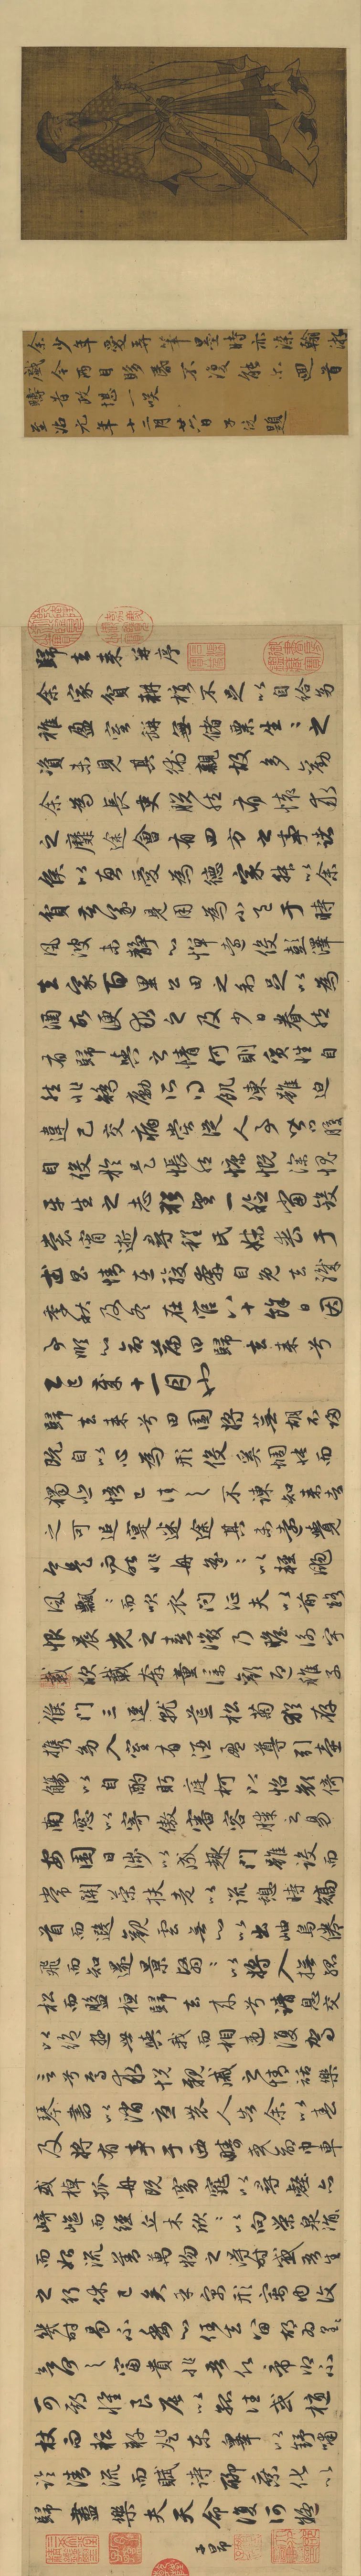 余少年愛弄筆墨時亦染翰游
戲今兩目眵昏不復能尒迴首
疇昔政堪一咲
至治元年十二月廿六日子昂題
歸去來并序
余家貧耕植不足以自給幼
稚盈室缾無儲粟生〻之
資未見其術親故多勸
余為長吏脫然有懷求
之靡途會有四方之事諸
侯以惠愛為德家叔以余
貧苦遂見用為小邑于時
風波未靜心憚遠役彭澤
去家百里公田之利足以為
酒故便求之及少日眷然
有歸與之情何則質性自
然非矯勵所得飢凍雖迫
違己交病嘗從人事皆口腹
自役於是悵然慷慨深愧
平生之志猶望一稔當斂
裳宵逝尋程氏妹喪于
武昌情在駿奔自免去職
季秋及冬在官八十餘日因
事順心命篇曰歸去來兮
乙巳歲十一月也
歸去來兮田園將蕪胡不歸
既自以心為形役奚惆悵而
獨悲悟已往之不諫知來者
之可追寔迷途其未遠覺
今是而昨非舟遙〻以輕颺
風飄〻而吹衣問征夫以前路
恨晨光之熹微乃瞻衡宇
載欣載奔童僕歡迎稚子
候門三逕就荒松菊猶存
携幼入室有酒盈尊引壺
觴以自酌眄庭柯以怡顏倚
南窓以寄傲審容膝之易
安園日涉以成趣門雖設而
常關策扶老以流憩時矯
首而遐觀雲無心以出岫鳥倦
飛而知還景翳〻以將入撫孤
松而盤桓歸去來兮請息交
以絕遊世與我而相遺復駕
言兮焉求悅親戚之情話樂
琴書以消憂農人告余以春
及將有事于西疇或命巾車
或棹孤舟既窈窕以尋壑亦
崎嶇而經丘木欣〻以向榮泉涓〻
而始流善萬物之得時感吾生
之行休已矣乎寓形宇內復
幾時曷不委心任去留胡為遑〻
兮何之富貴非吾願帝鄉不
可期懷良辰以孤往或植
杖而耘耔登東皋以舒嘯
臨清流而賦詩聊乘化以
歸盡樂夫天命復何疑
子昂